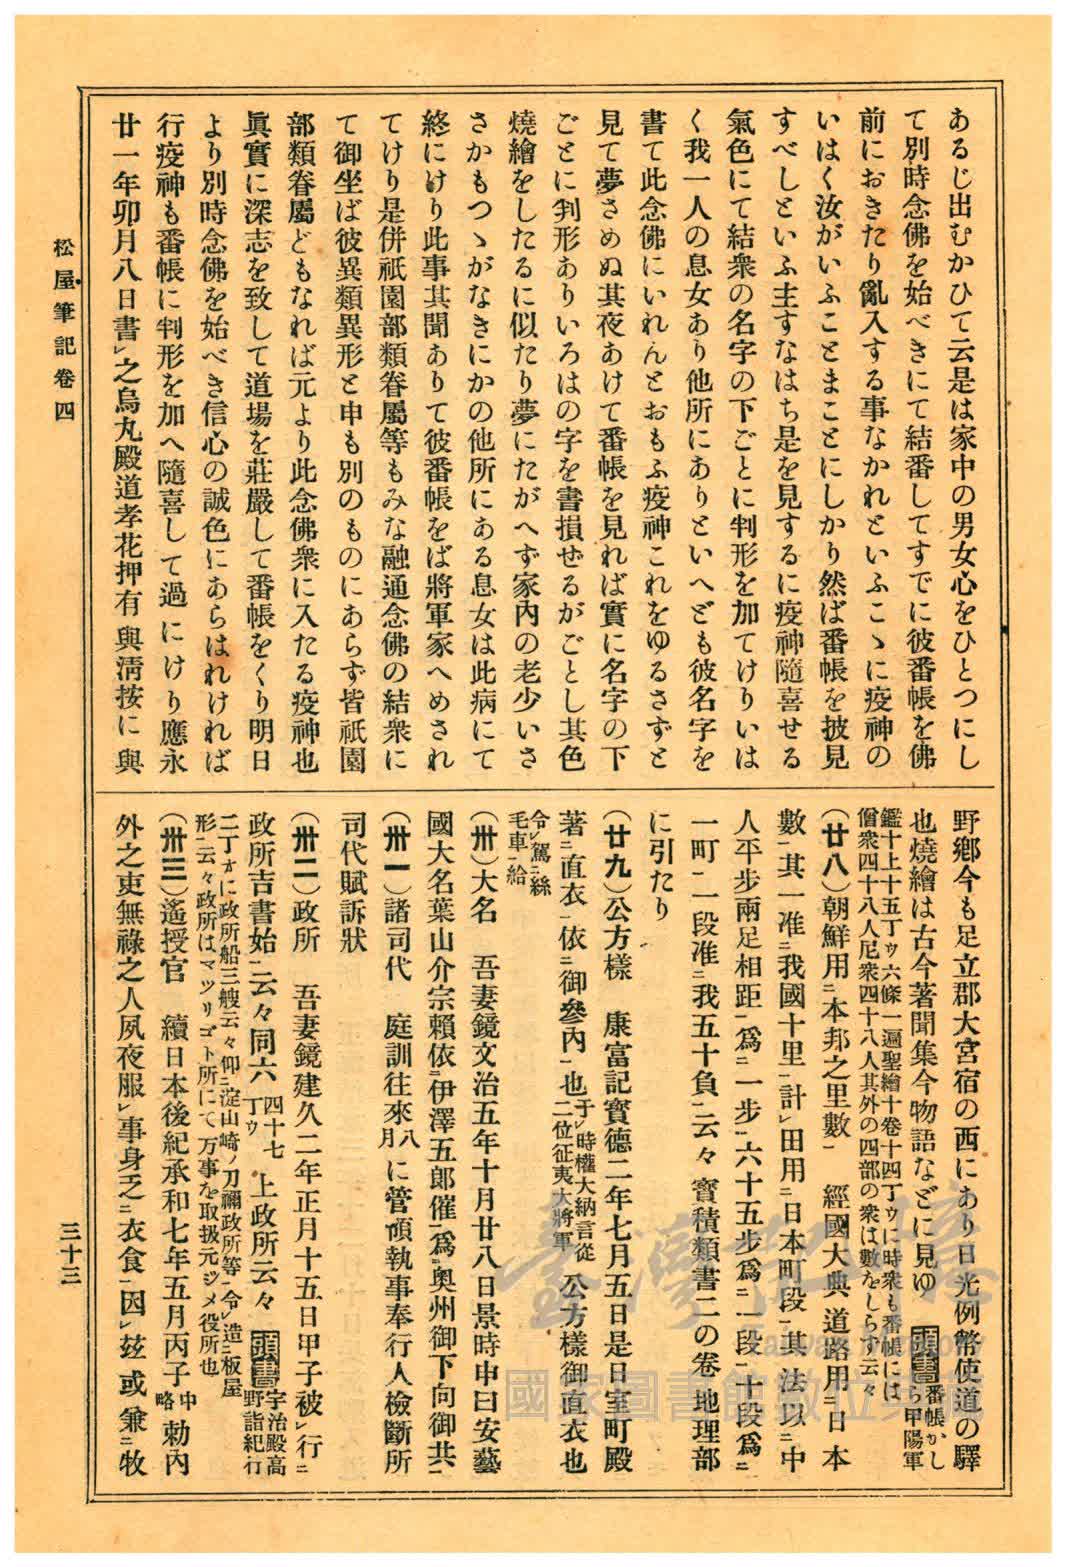 あるじ出むかひて云是は家中の男女心をひとつにし
て別時念佛を始べきにて結番してすでに彼番帳を佛
前におきたり亂入する事なかれといふこゝに疫神の
いはく汝がいふことまことにしかり然ば番帳を披見
すべしといふ主すなはち是を見するに疫神隨喜せる
氣色にて結衆の名字の下ごとに判形を加てけりいは
く我一人の息女あり他所にありといへども彼名字を
書て此念佛にいれんとおもふ疫神これをゆるさずと
見て夢さめぬ其夜あけて番帳を見れば實に名字の下
ごとに判形ありいろはの字を書損せるがごとし其色
燒繪をしたるに似たり夢にたがへず家內の老少いさ
さかもつゝがなきにかの他所にある息女は此病にて
終にけり此事其聞ありて彼番帳をば將軍家へめされ
てけり是併祇園部類眷屬等もみな融通念佛の結衆に
て御坐ば彼異類異形と申も別のものにあらず皆祇園
部類眷屬どもなれば元より此念佛衆に入たる疫神也
眞實に深志を致して道場を莊嚴して番帳をくり明日
より別時念佛を始べき信心の誠色にあらはれければ
行疫神も番帳に判形を加へ隨喜して過にけり應永
廿一年卯月八日書レ之烏丸殿道孝花押有 與淸按に與
野鄕今も足立郡大宮宿の西にあり日光例幣使道の驛
也燒繪は古今著聞集今物語などに見ゆ 頭書 番帳かしら甲陽軍
鑑十上十五丁ウ六條一遍聖繪十卷十四丁ウに時衆も番帳には
僧衆四十八人尼衆四十八人其外の四部の衆は數をしらす云々
(廿八)朝鮮用ニ本邦之里數一 經國大典道路用ニ日本
數一其一准ニ我國十里一計レ田用ニ日本町段一其法以ニ中
人平步兩足相距一爲ニ一步一六十五步爲ニ一段一十段爲ニ
一町一一段准ニ我五十負一云々寶積類書二の卷地理部
に引たり
(廿九)公方樣 康富記寶德二年七月五日是日室町殿
著ニ直衣一依ニ御參內一也 于レ時權大納言從二位征夷大將軍 公方樣御直衣也
令レ駕ニ絲毛車一給
(卅)大名 吾妻鏡文治五年十月廿八日景時申曰安藝
國大名葉山介宗賴依ニ伊澤五郎催一爲ニ奧州御下向御共一
(卅一)諸司代 庭訓往來八月に管領執事奉行人檢斷所
司代賦訴狀
(卅二)政所 吾妻鏡建久二年正月十五日甲子被レ行ニ
政所吉書始一云々同六 四十七丁ウ 上政所云々 頭書 宇治殿高野詣紀行
二丁オに政所船三艘云々仰ニ淀山崎ノ刀禰政所等一令レ造ニ板屋
形一云々政所はマツリゴト所にて万事を取扱元ジメ役所也
(卅三)遙授官 續日本後紀承和七年五月丙子 中略 勅內
外之吏無祿之人夙夜服レ事身乏ニ衣食一因レ茲或兼ニ牧
松屋筆記卷四
三十三
臺灣記憶
Taiwan Memory
國家圖書館數位典藏